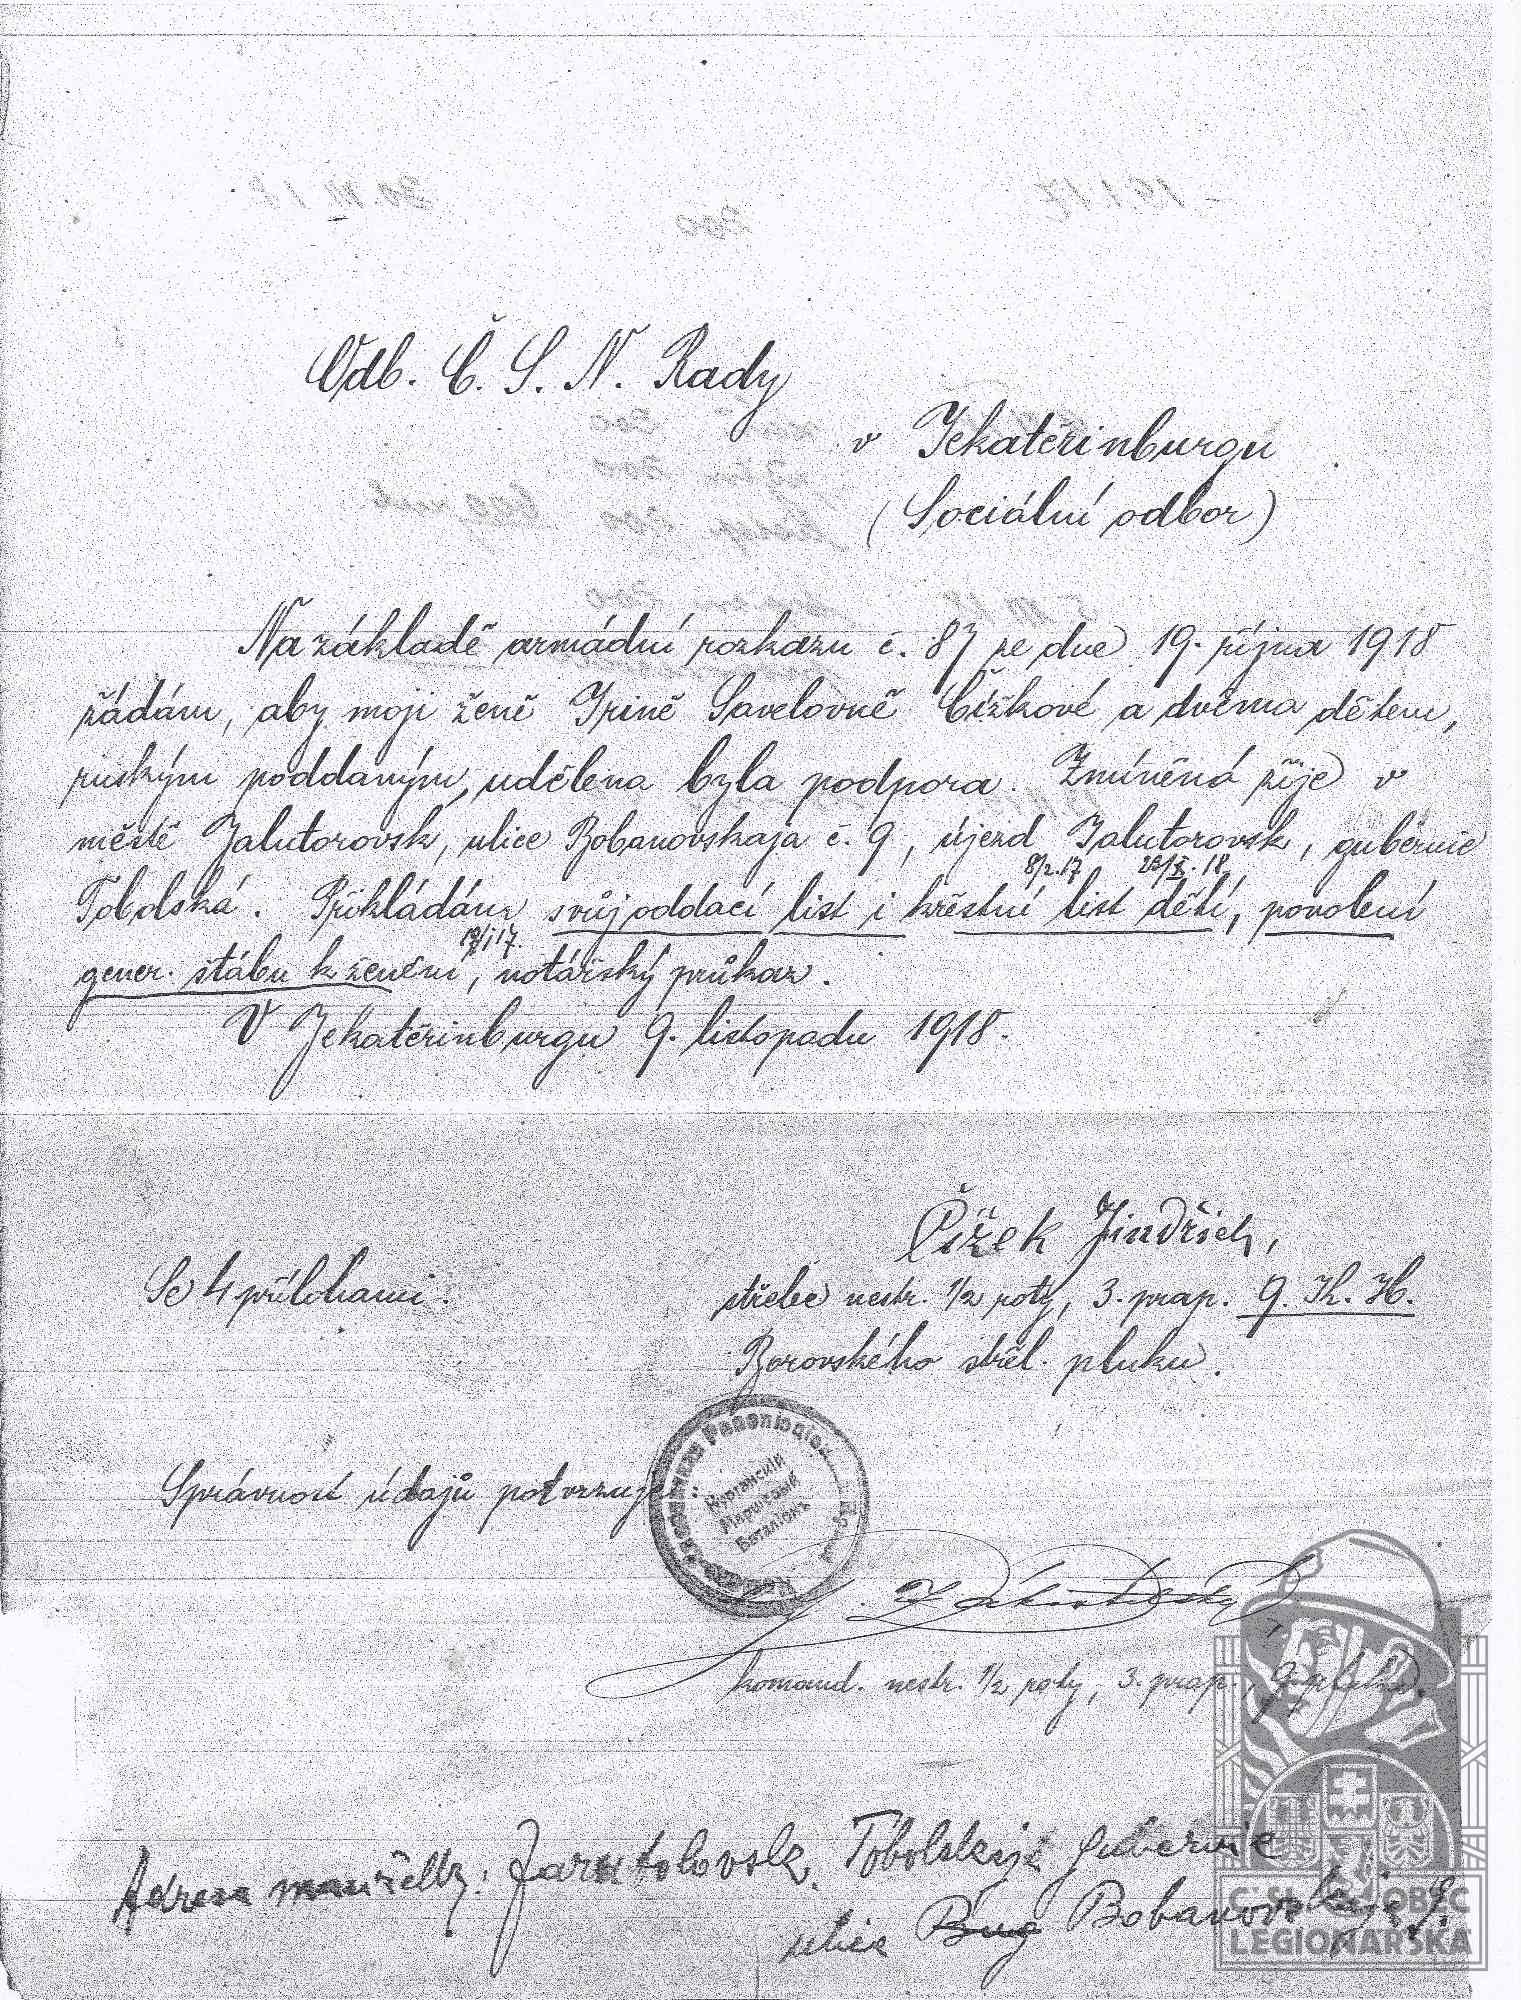 Odb. Č. S. N. Rady
v Jekatěrinburgu
(Sociální odbor)
Na základě armádní rozkazu č. 87 ze dne 19. října 1918
žádám, aby moji ženě Irině Savelovně Čížkové a dvěma dětem,
ruským poddaným, udělena byla podpora. Zmíněná žije v
městě Jalutorovsk, ulice Bobanovskaja č. 9, újezd Jalutorovsk, gubernie
8/2.17 25/X.18
Tobolská. Přikládám svůj oddací list i křestní list dětí, povolení
19/I 17.
gener. štábu k ženění, notářský průkaz.
V Jekatěrinburgu 9. listopadu 1918.
Čížek Jindřich,
Se 4 přílohami.
střelec nestr. 1/2 roty, 3. prap. 9. K. H.
Borovského střel. pluku.
Správnost údajů potvrzuje:
Курганский
Маршевый
Баталіонъ
komand. nestr. 1/2 roty, 3. prap., 9. pluku.
Adresa manželky: Jarutolovsk, Tobolskaje gubernie
ulice Bug Bobanovskaje 9.
ČSL. OBEC
LEGIONÁŘSKÁ